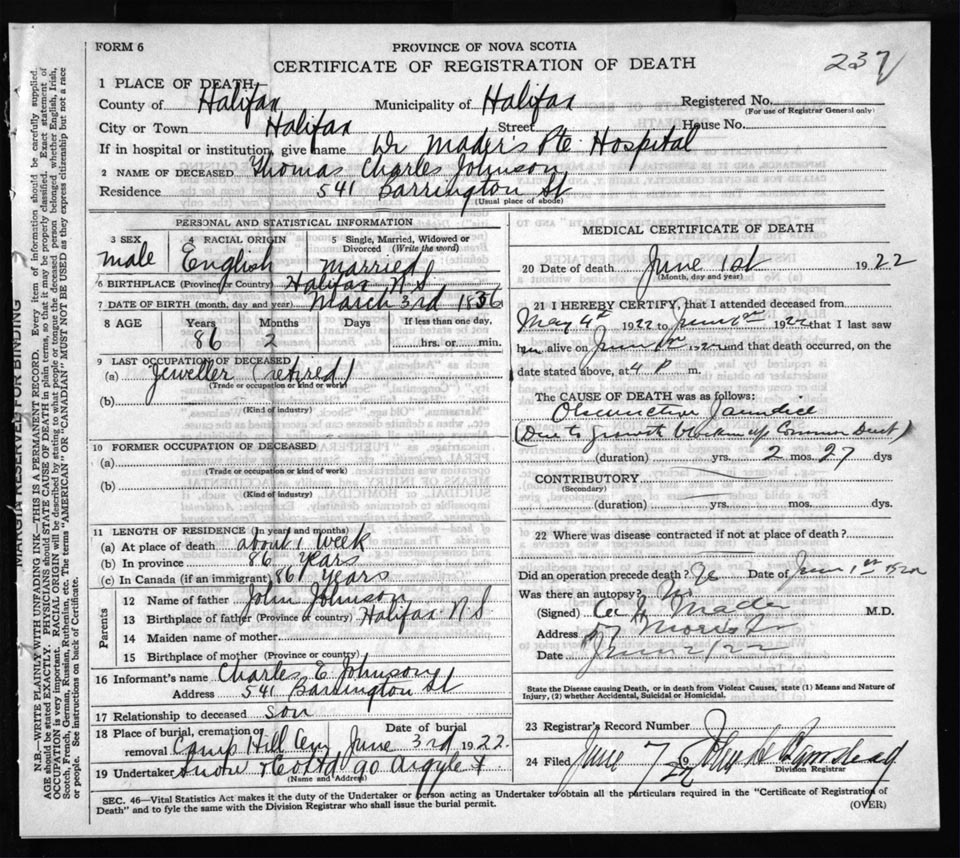 FORM 6
PROVINCE OF NOVA SCOTIA
CERTIFICATE OF REGISTRATION OF DEATH
237
1 PLACE OF DEATH
County of Halifax Municipality of Halifax Registered No.
(For use of Registrar General only)
City or Town Halifax Street House No.
If in hospital or institution, give name Dr Mader's Pte Hospital
2 NAME OF DECEASED Thomas Charles Johnson
Residence 541 Barrington St
(Usual place of abode)
PERSONAL AND STATISTICAL INFORMATION
3 SEX 4 RACIAL ORIGIN 5 Single, Married, Widowed or Divorced (Write the word)
male English Married
6 BIRTHPLACE (Province or Country) Halifax N S
7 DATE OF BIRTH (month, day and year) March 3rd 1836
8 AGE Years Months Days If less than one day,
86 2 hrs. or min.
9 LAST OCCUPATION OF DECEASED
(a) Jeweller (retired)
(Trade or occupation or kind of work)
(b)
(Kind of industry)
10 FORMER OCCUPATION OF DECEASED
(a)
(Trade or occupation or kind of work)
(b)
(Kind of industry)
11 LENGTH OF RESIDENCE (In years and months)
(a) At place of death about 1 week
(b) In province 86 years
(c) In Canada (if an immigrant) 86 years
Parents
12 Name of father John Johnson
13 Birthplace of father (Province or country) Halifax N S
14 Maiden name of mother
15 Birthplace of mother (Province or country)
16 Informant's name Charles E Johnson
Address 541 Barrington St
17 Relationship to deceased son
18 Place of burial, cremation or removal Camp Hill Cey Date of burial June 3rd 1922.
19 Undertaker Snow & Co Ltd 90 Argyle St
(Name and Address)
MEDICAL CERTIFICATE OF DEATH
20 Date of death June 1st 1922
(Month, day and year)
21 I HEREBY CERTIFY, that I attended deceased from
May 4th 1922 to June 1st 1922 that I last saw
him alive on June 1st 1922 and that death occurred, on the
date stated above, at 4 P m.
The CAUSE OF DEATH was as follows:
Obstructive Jaundice
(Due to growth blocking up Common Duct)
(duration) yrs. 2 mos. 27 dys
CONTRIBUTORY
(Secondary)
(duration) yrs. mos. dys.
22 Where was disease contracted if not at place of death?
Did an operation precede death? Date of June 1st 1922
Was there an autopsy? No
(Signed) A. J. Mader M.D.
Address 57 Morris St
Date June 2/22
State the Disease causing Death, or in death from Violent Causes, state (1) Means and Nature of Injury, (2) whether Accidental, Suicidal or Homicidal.
23 Registrar's Record Number
24 Filed June 7 22
Division Registrar
SEC. 46—Vital Statistics Act makes it the duty of the Undertaker or person acting as Undertaker to obtain all the particulars required in the "Certificate of Registration of
Death" and to fyle the same with the Division Registrar who shall issue the burial permit.
(OVER)
MARGIN RESERVED FOR BINDING
N.B.—WRITE PLAINLY WITH UNFADING INK—THIS IS A PERMANENT RECORD. Every item of information should be carefully supplied.
AGE should be stated EXACTLY. PHYSICIANS should STATE CAUSE OF DEATH in plain terms, so that it may be properly classified. Exact statement of
OCCUPATION is very important. RACIAL ORIGIN will be described by stating to what people or tongue the deceased person belonged whether English, Irish,
Scotch, French, German, Russian, Ruthenian, etc. The terms "AMERICAN" OR "CANADIAN" MUST NOT BE USED as they express citizenship but not a race
or people. See instructions on back of Certificate.